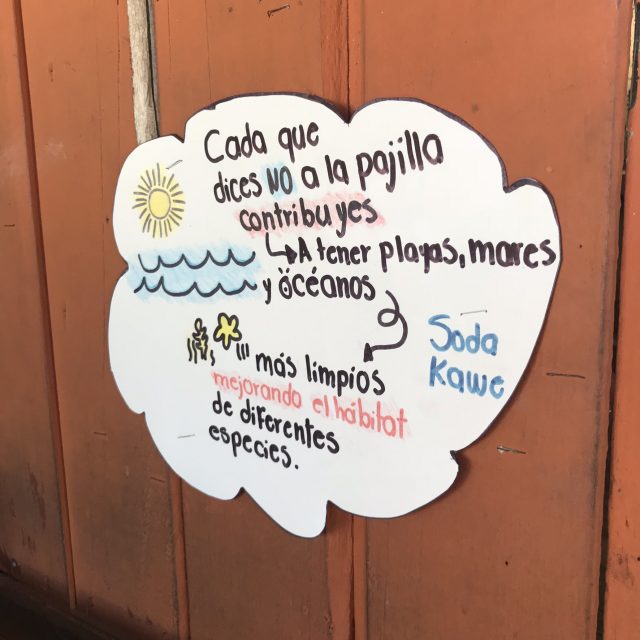 Cada que
dices NO a la pajilla
contribuyes
A tener playas, mares
y océanos
más limpios
mejorando el hábitat
de diferentes
especies.
Soda
Kawe